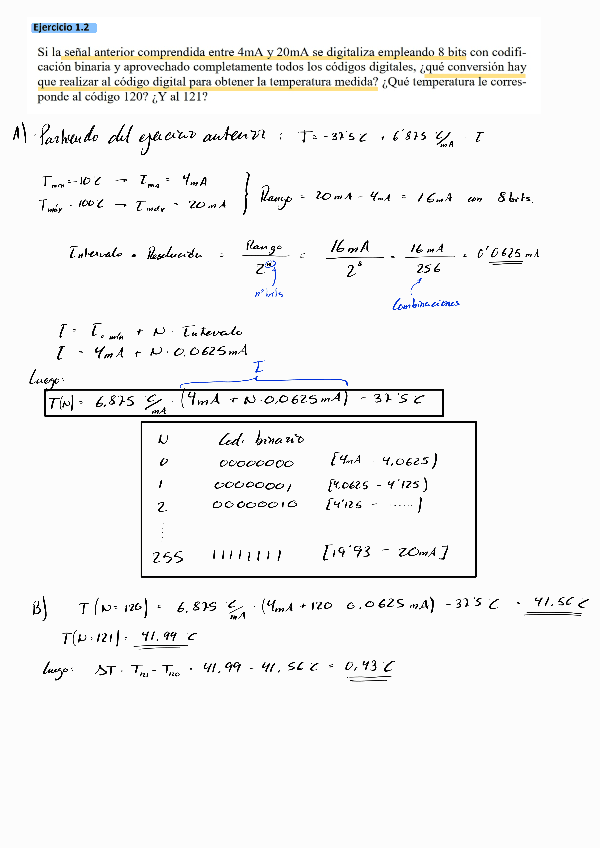 Ejercicio 1.2
Si la señal anterior comprendida entre 4mA y 20mA se digitaliza empleando 8 bits con codifi-
cación binaria y aprovechado completamente todos los códigos digitales, ¿qué conversión hay
que realizar al código digital para obtener la temperatura medida? ¿Qué temperatura le corres-
ponde al código 120? ¿Y al 121?
A) Partiendo del ejercicio anterior : T = -37'5 C + 6'875 C/mA I
Tmin = -10 C → Imin = 4mA
Tmáx = 100 C → Imáx = 20 mA } Rango = 20mA - 4mA = 16mA con 8 bits.
Intervalo = Resolución = Rango / 2^n = 16mA / 2^8 = 16mA / 256 = 0'0625 mA
nº bits
Combinaciones
I = I0 mín + N · Intervalo
I = 4mA + N · 0,0625mA
Luego: I
T(N) = 6,875 C/mA · (4mA + N · 0,0625mA) - 37'5 C
N Cod. binario
0 00000000 [4mA - 4,0625)
1 00000001 [4,0625 - 4'125)
2 00000010 [4'125 - .....)
⋮
255 11111111 [19'93 - 20mA]
B) T(N=120) = 6,875 C/mA · (4mA + 120 · 0,0625 mA) - 37'5 C = 41,56 C
T(N=121) = 41,99 C
Luego: ΔT = T121 - T120 = 41,99 - 41,56 C = 0,43 C